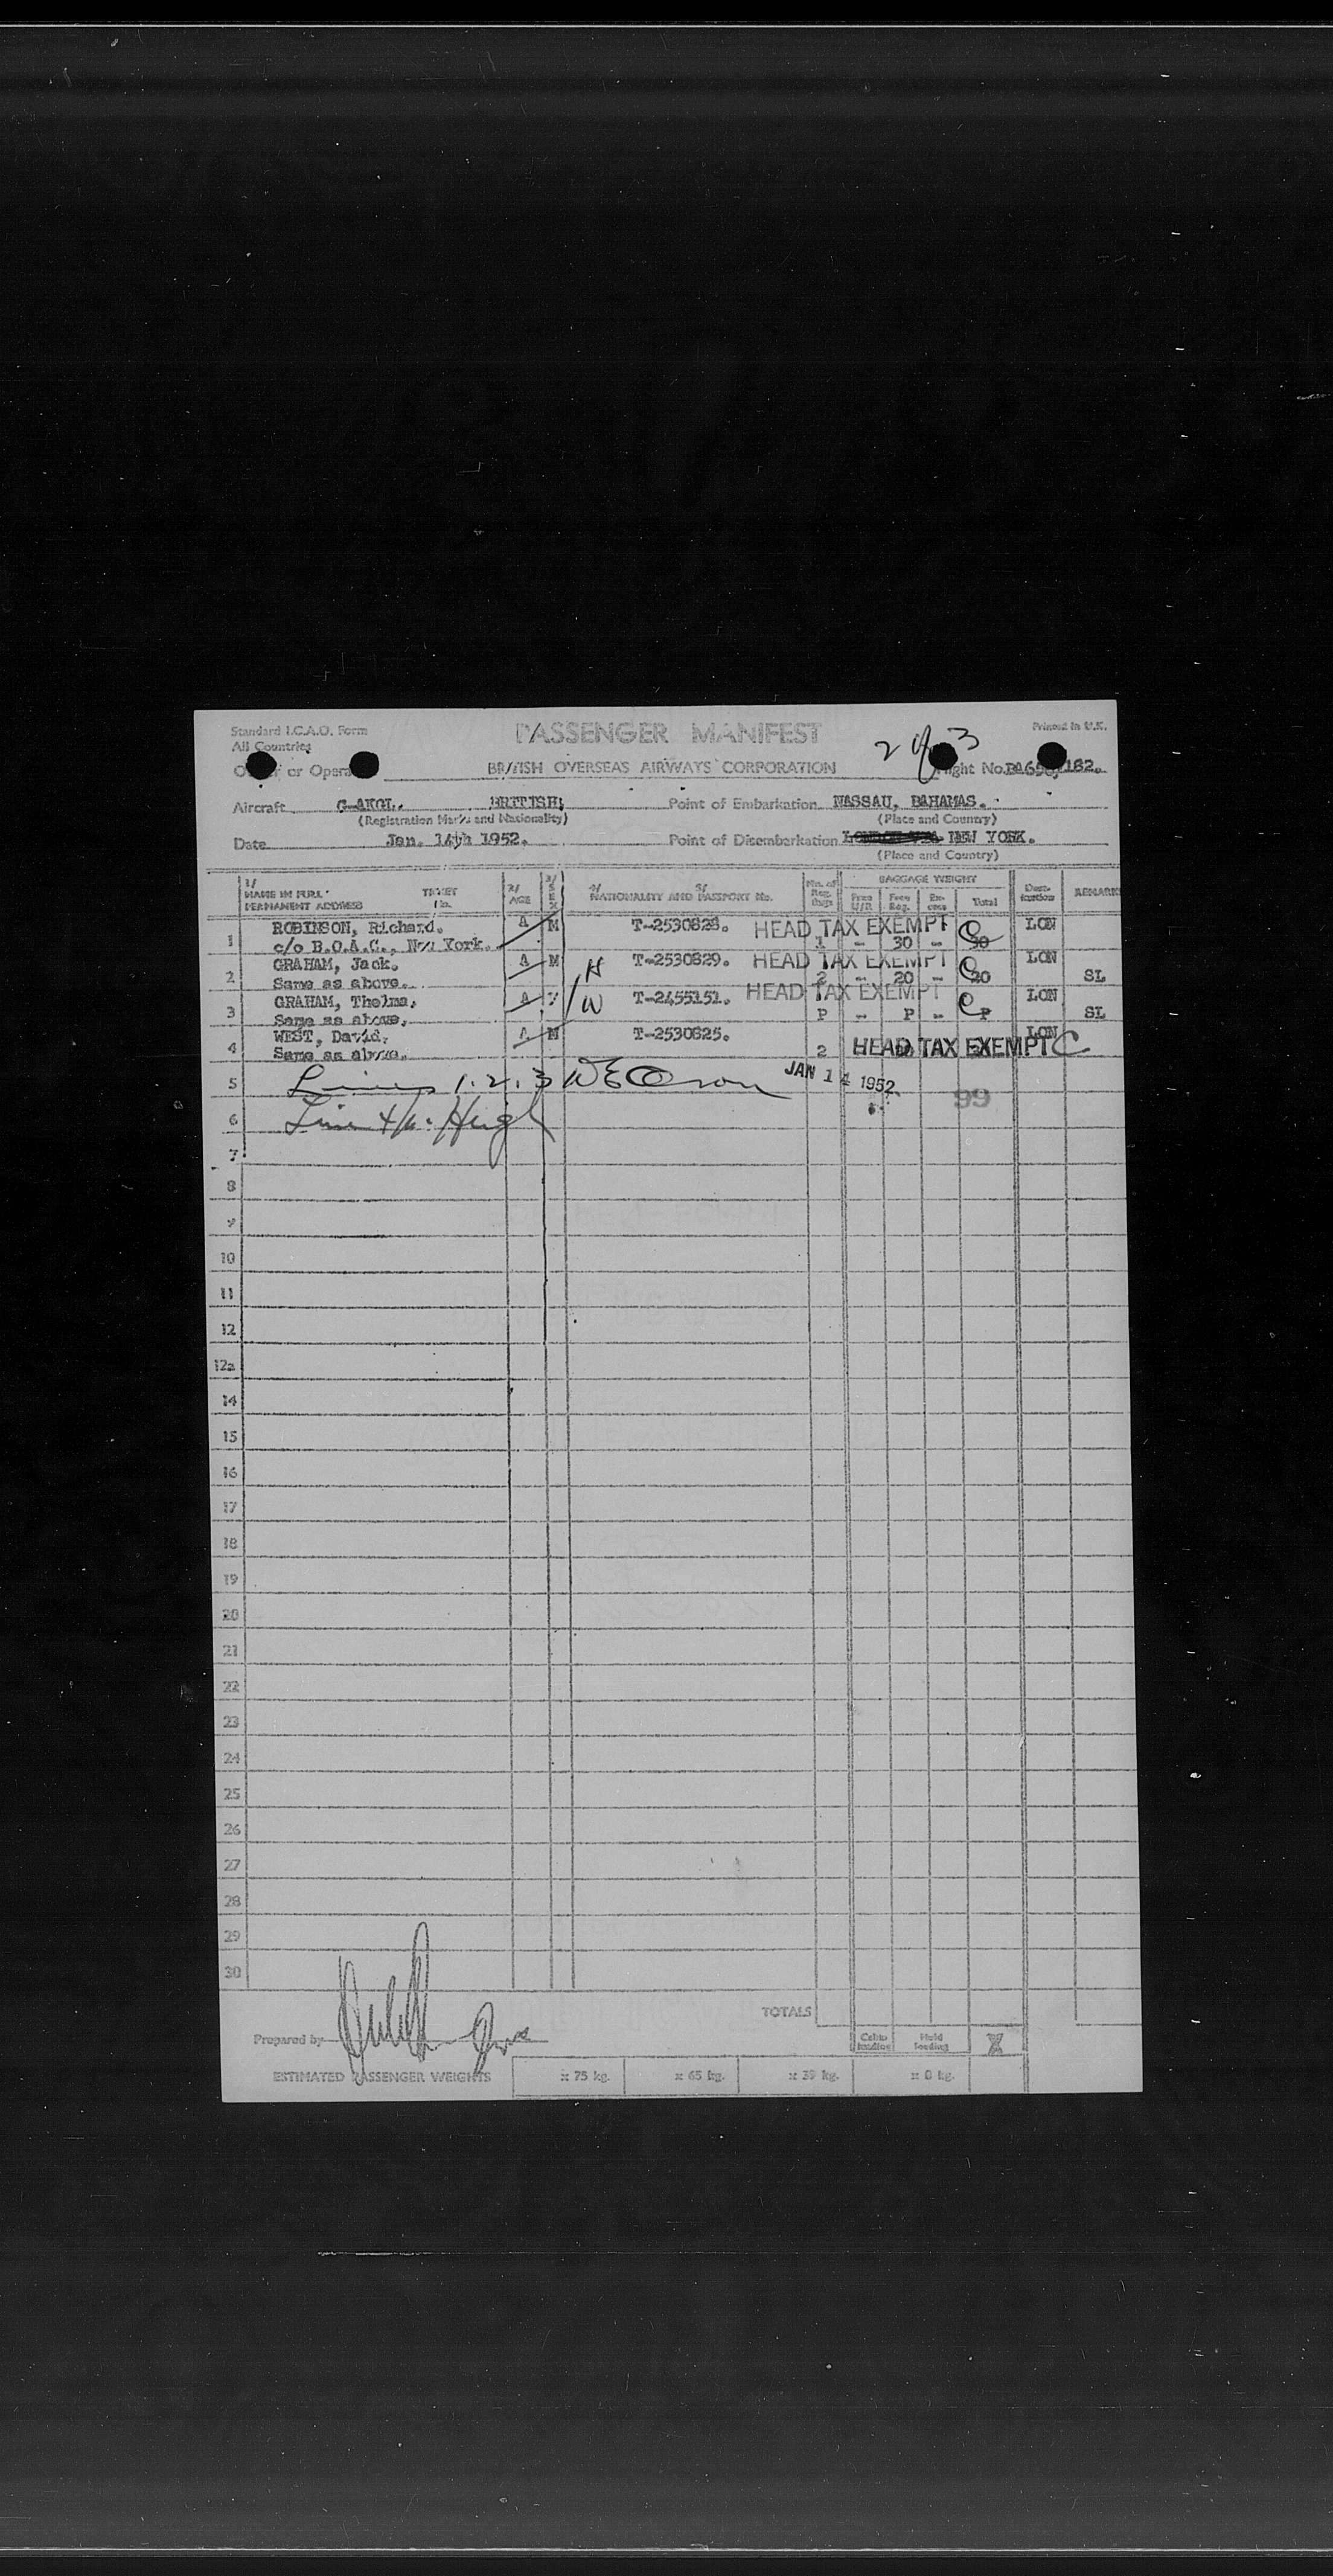 Standard I.C.A.O. Form
All Countries
PASSENGER MANIFEST
2 of 3
Printed in U.K.
or Opera
BRITISH OVERSEAS AIRWAYS CORPORATION
Flight No. 162.
Aircraft G-AKGL. BRITISH, Point of Embarkation NASSAU, BAHAMAS.
(Registration Marks and Nationality) (Place and Country)
Date Jan. 14th 1952. Point of Disembarkation NEW YORK.
(Place and Country)
1/ NAME IN FULL PERMANENT ADDRESS TICKET No. 2/ AGE 3/ SEX 4/ NATIONALITY AND 5/ PASSPORT No. No. of Reg. Bags BAGGAGE WEIGHT Free U/R Free Reg. Ex- cess Total Dest- ination REMARKS
1 ROBINSON, Richard. A M T-2530828. HEAD TAX EXEMPT C LON
c/o B.O.A.C., New York. 1 - 30 - 30
2 GRAHAM, Jack. A M H T-2530829. HEAD TAX EXEMPT C LON
Same as above. 2 - 20 - 20 SL
3 GRAHAM, Thelma, A W T-2455151. HEAD TAX EXEMPT C LON
Same as above, P - P - P SL
4 WEST, David, A M T-2530825. LON
Same as above. 2 HEAD TAX EXEMPT C
5 Lines 1.2.3 JAN 14 1952 99
6 Line 4
7
8
9
10
11
12
12a
14
15
16
17
18
19
20
21
22
23
24
25
26
27
28
29
30
TOTALS
Prepared by Cabin loading Hold loading
ESTIMATED PASSENGER WEIGHTS x 75 kg. x 65 kg. x 39 kg. x 8 kg.